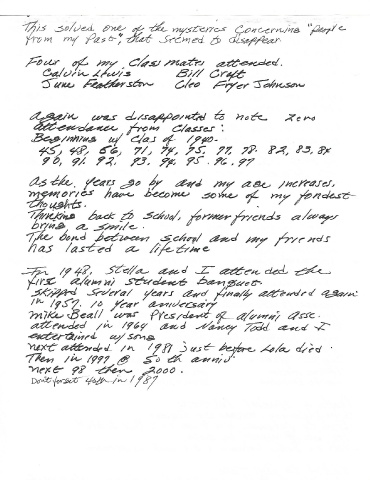 This solved one of the mysteries concerning "People
from my Past", that seemed to disappear
Four of my class mates attended.
Calvin Lewis Bill Craft
June Featherston Cleo Fryer Johnson
Again was disappointed to note zero
attendance from classes:
Beginning w/ Clas of 1940-
45, 48, 56, 71, 74, 75, 77, 78. 82, 83, 84
90, 91. 92. 93. 94. 95. 96. 97
As the years go by and my age increases,
memories have become some of my fondest
thoughts.
Thinking back to school, former friends always
bring a smile.
The bond between school and my friends
has lasted a lifetime
In 1948, Stella and I attended the
first alumni student banquet.
Skipped several years and finally attended again
in 1957. 10 year anniversary
Mike Beall was President of alumni Assc.
attended in 1964 and Nancy Todd and I
entertained w/song
next attended in 1981 just before Lola died.
Then in 1997 @ 50th anniv
next 98 then 2000.
Don't forget 40th in 1987